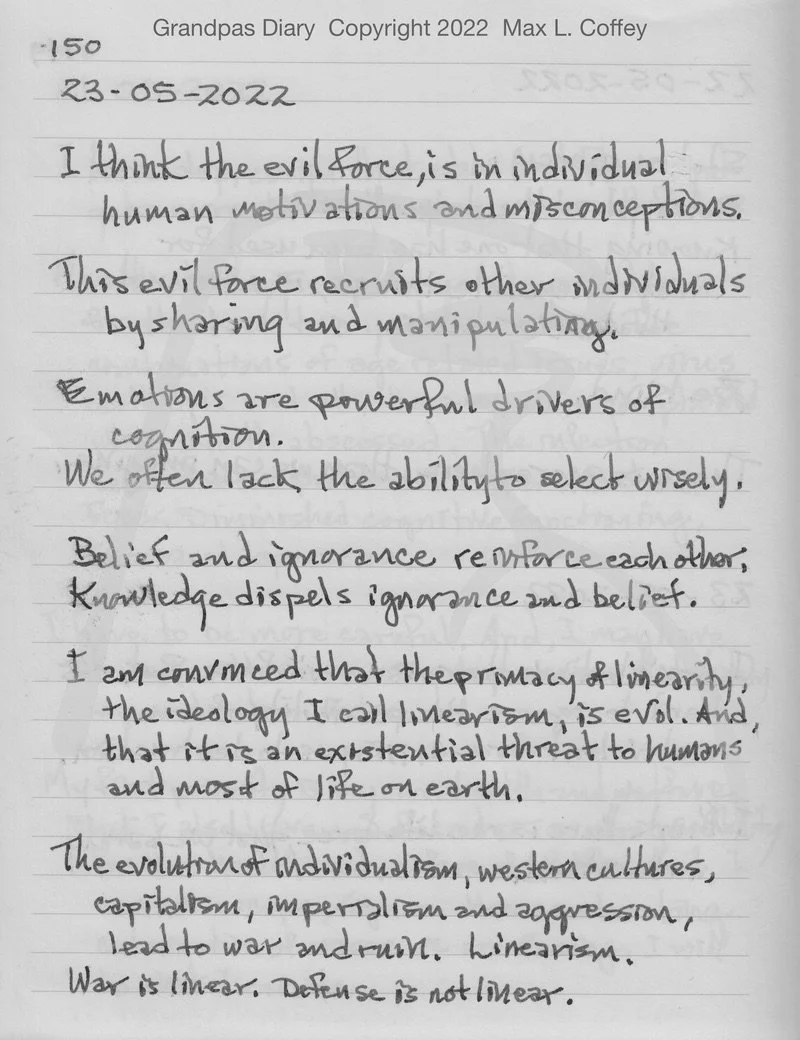 Grandpas Diary Copyright 2022 Max L. Coffey
150
23-05-2022
I think the evil force, is in individual
human motivations and misconceptions.
This evil force recruits other individuals
by sharing and manipulating.
Emotions are powerful drivers of
cognition.
We often lack the ability to select wisely.
Belief and ignorance reinforce each other;
Knowledge dispels ignorance and belief.
I am convinced that the primacy of linearity,
the ideology I call linearism, is evol. And,
that it is an existential threat to humans
and most of life on earth.
The evolution of individualism, western cultures,
capitalism, imperialism and aggression,
lead to war and ruin. Linearism.
War is linear. Defense is not linear.